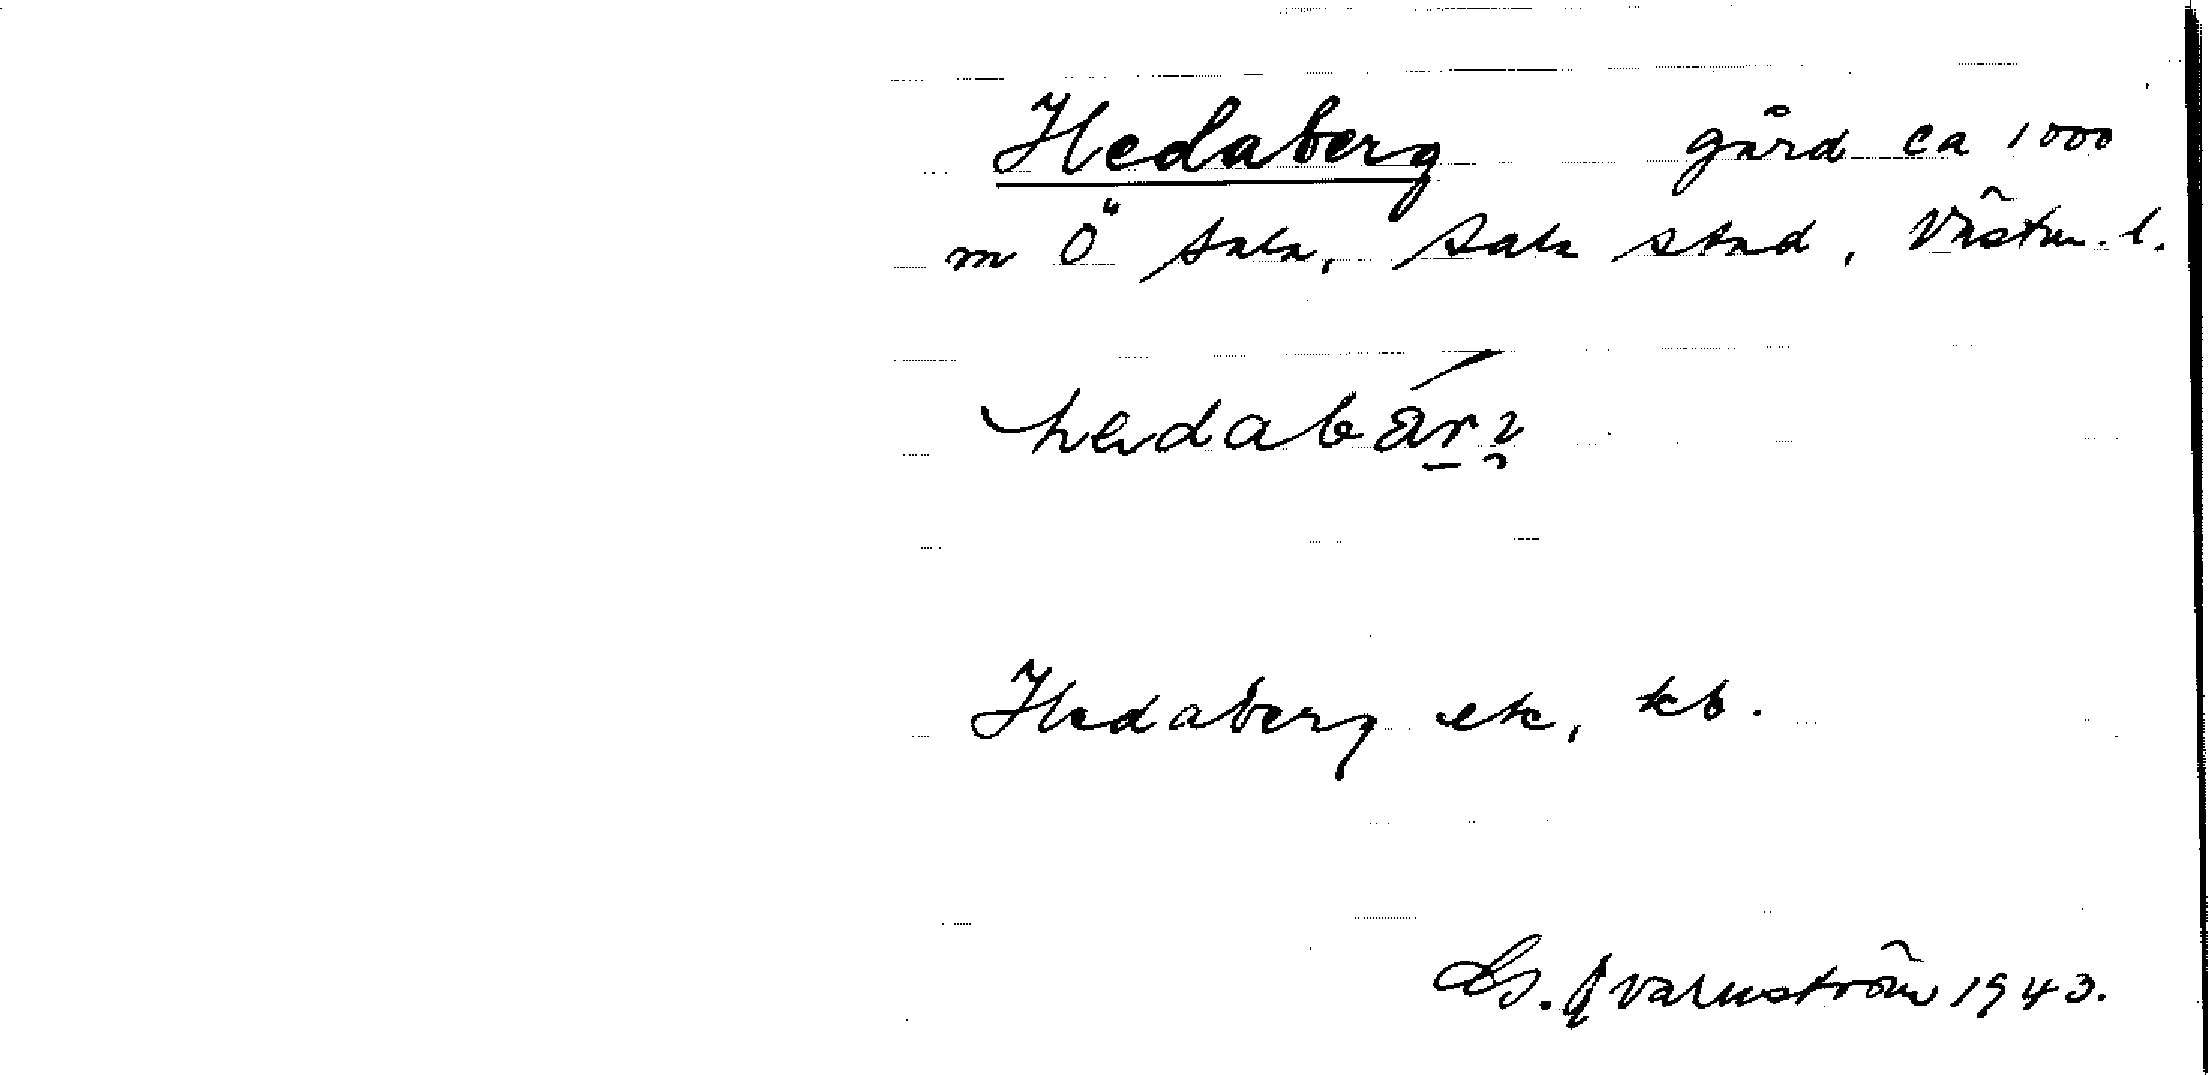 Hedaberg gård ca 1000
m Ö Sala, Sala stad, Västm. l.
Hedaberg ek, kb.
Qvarnström 1943.